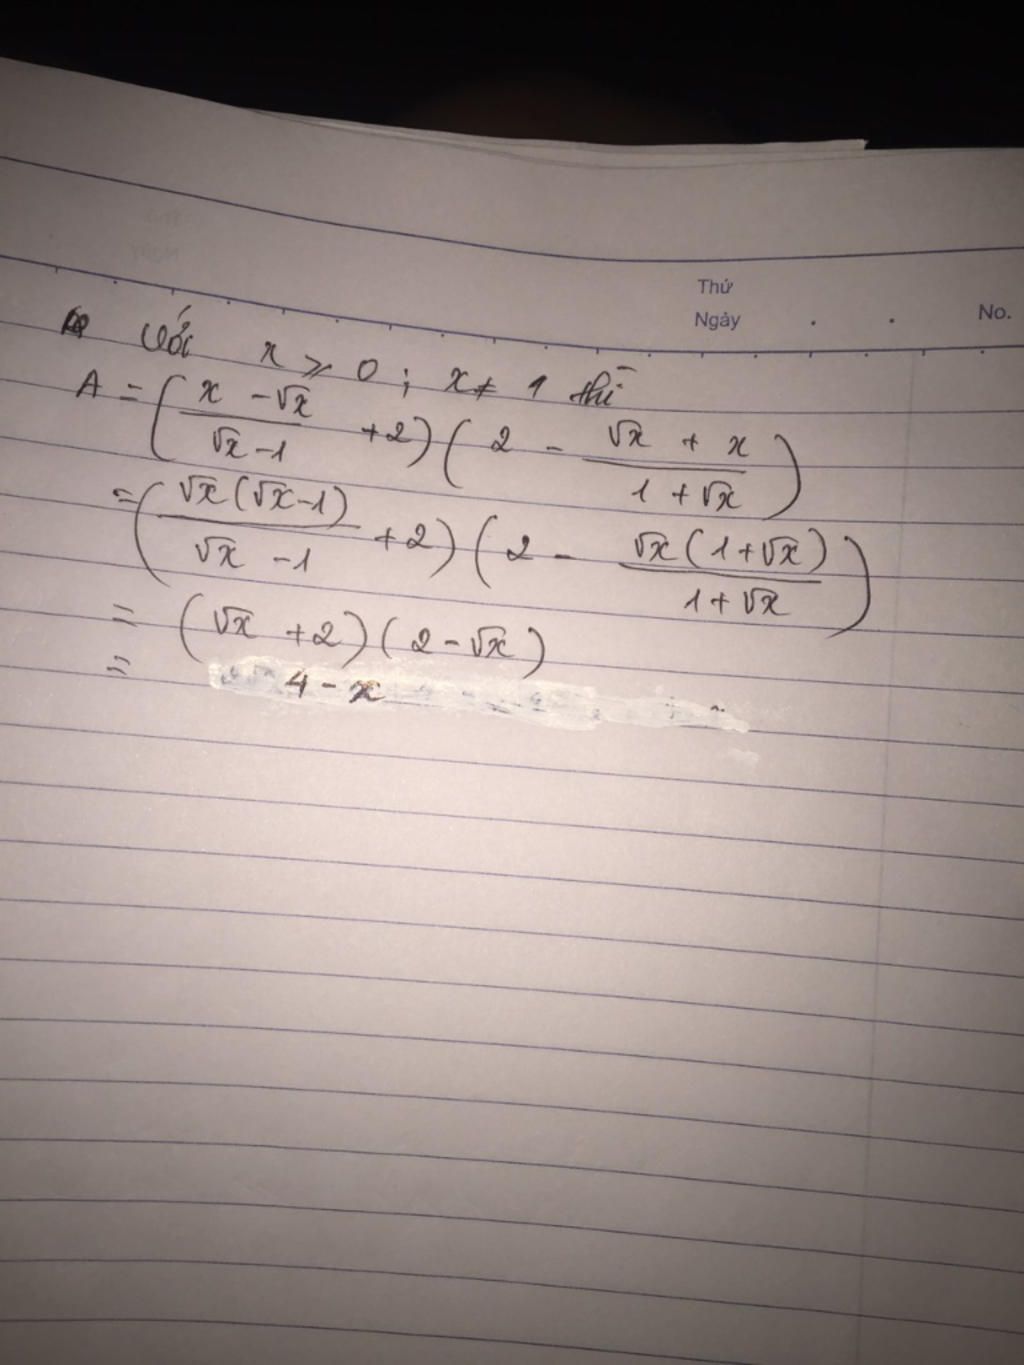 Thứ
Ngày . . No.
Với x ⩾ 0 ; x ≠ 1 thì
A = ( (x - √x)/(√x - 1) + 2 ) ( 2 - (√x + x)/(1 + √x) )
= ( (√x (√x - 1))/(√x - 1) + 2 ) ( 2 - (√x (1 + √x))/(1 + √x) )
= (√x + 2) (2 - √x)
= 4 - x